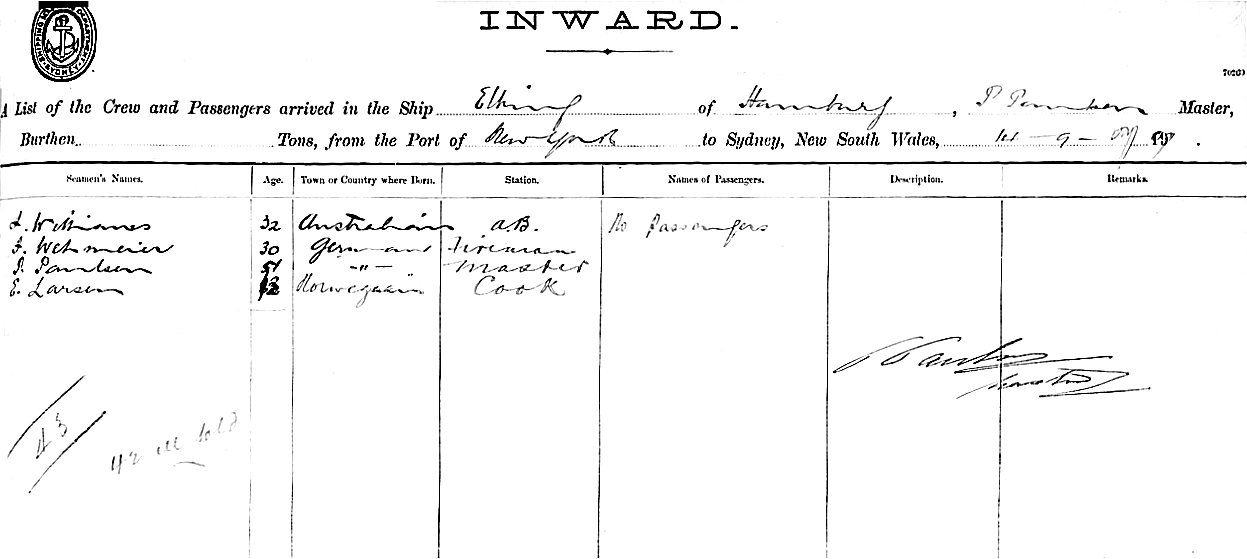 SHIPPING MASTER'S DEPARTMENT SYDNEY
INWARD.
A List of the Crew and Passengers arrived in the Ship Elbing of Hamburg, P. Paulsen Master,
Burthen Tons, from the Port of New York to Sydney, New South Wales, 9
Seamen's Names. Age. Town or Country where Born. Station. Names of Passengers. Description. Remarks.
Williams 32 Australian A.B. No Passengers
30 German Fireman
P. Paulsen 51 -"- Master
E. Larsen Norwegian Cook
Paulsen
Master
43
42 all told